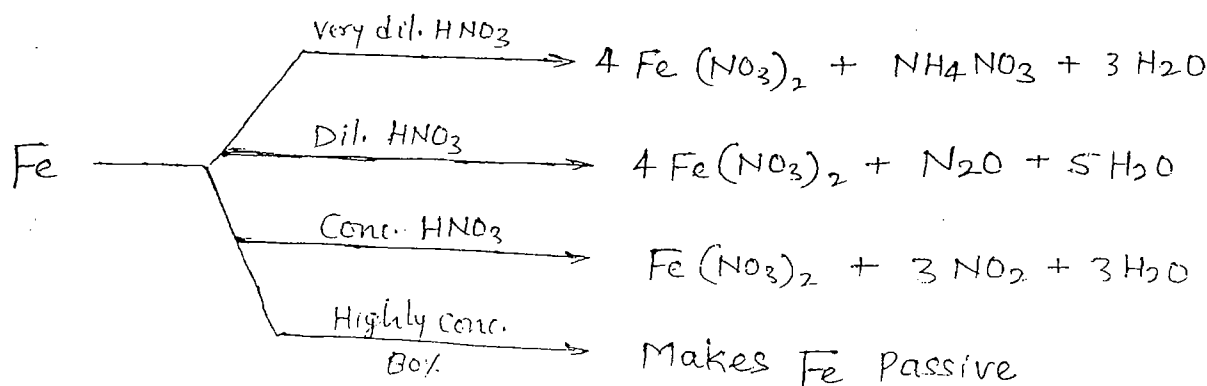 very dil. HNO3
4 Fe (NO3)2 + NH4NO3 + 3 H2O
Fe
Dil. HNO3
4 Fe(NO3)2 + N2O + 5 H2O
Conc. HNO3
Fe (NO3)2 + 3 NO2 + 3 H2O
Highly conc.
80%
Makes Fe Passive